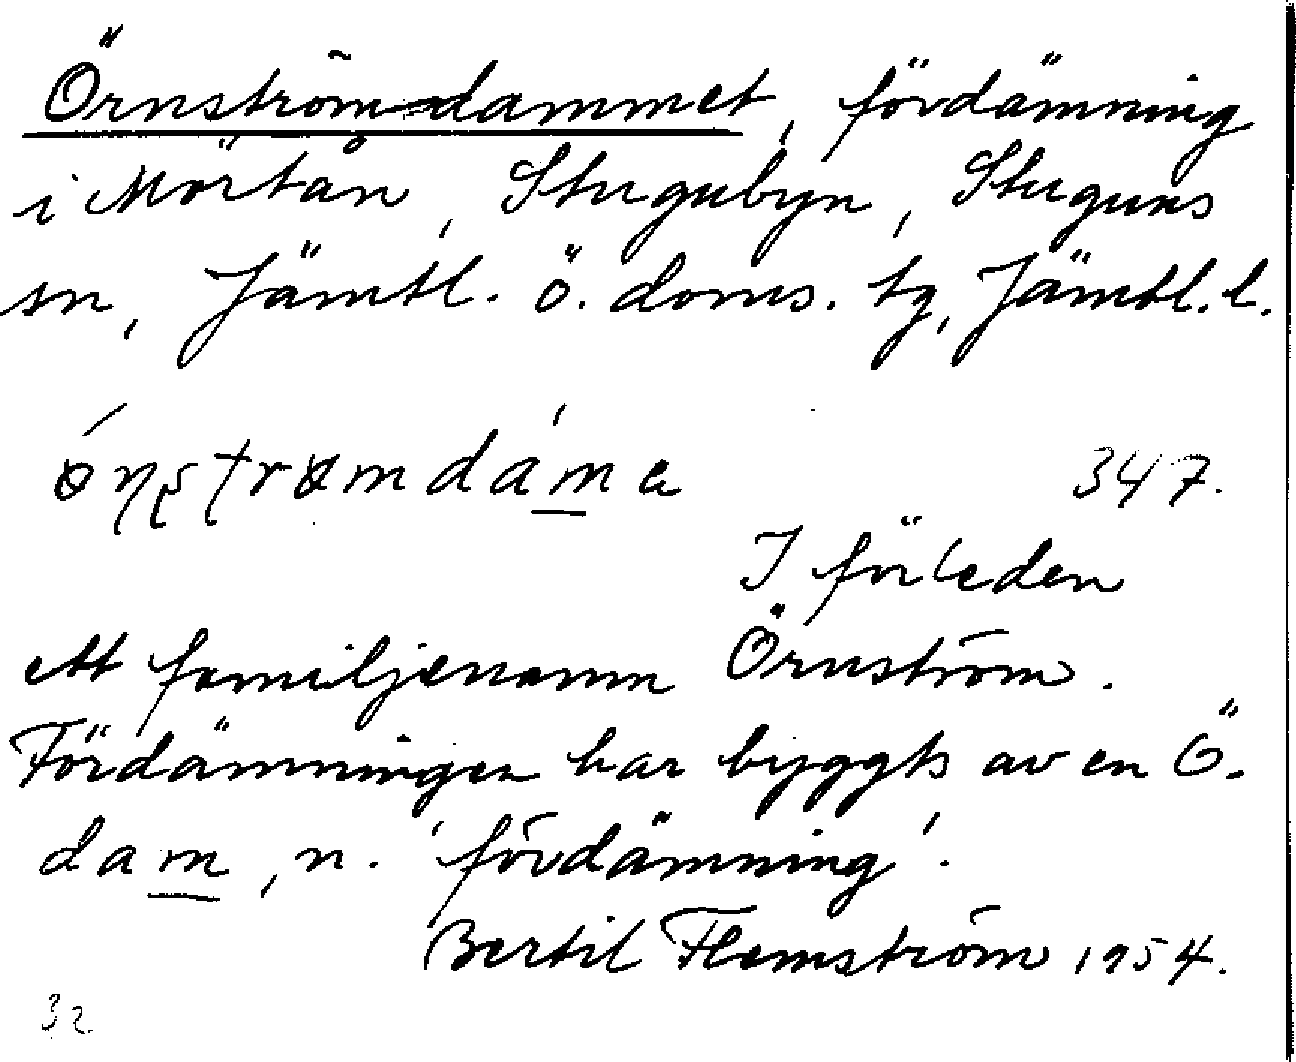 Örnström-dammet, fördämning
i Mörtån, Stugubyn, Stuguns
sn, Jämtl. ö. doms. tg, Jämtl. l.
347.
I förleden
ett familjenamn Örnström.
Fördämningen har byggts av en Ö.
dam, n. 'fördämning'.
Bertil Flemström 1954.
32